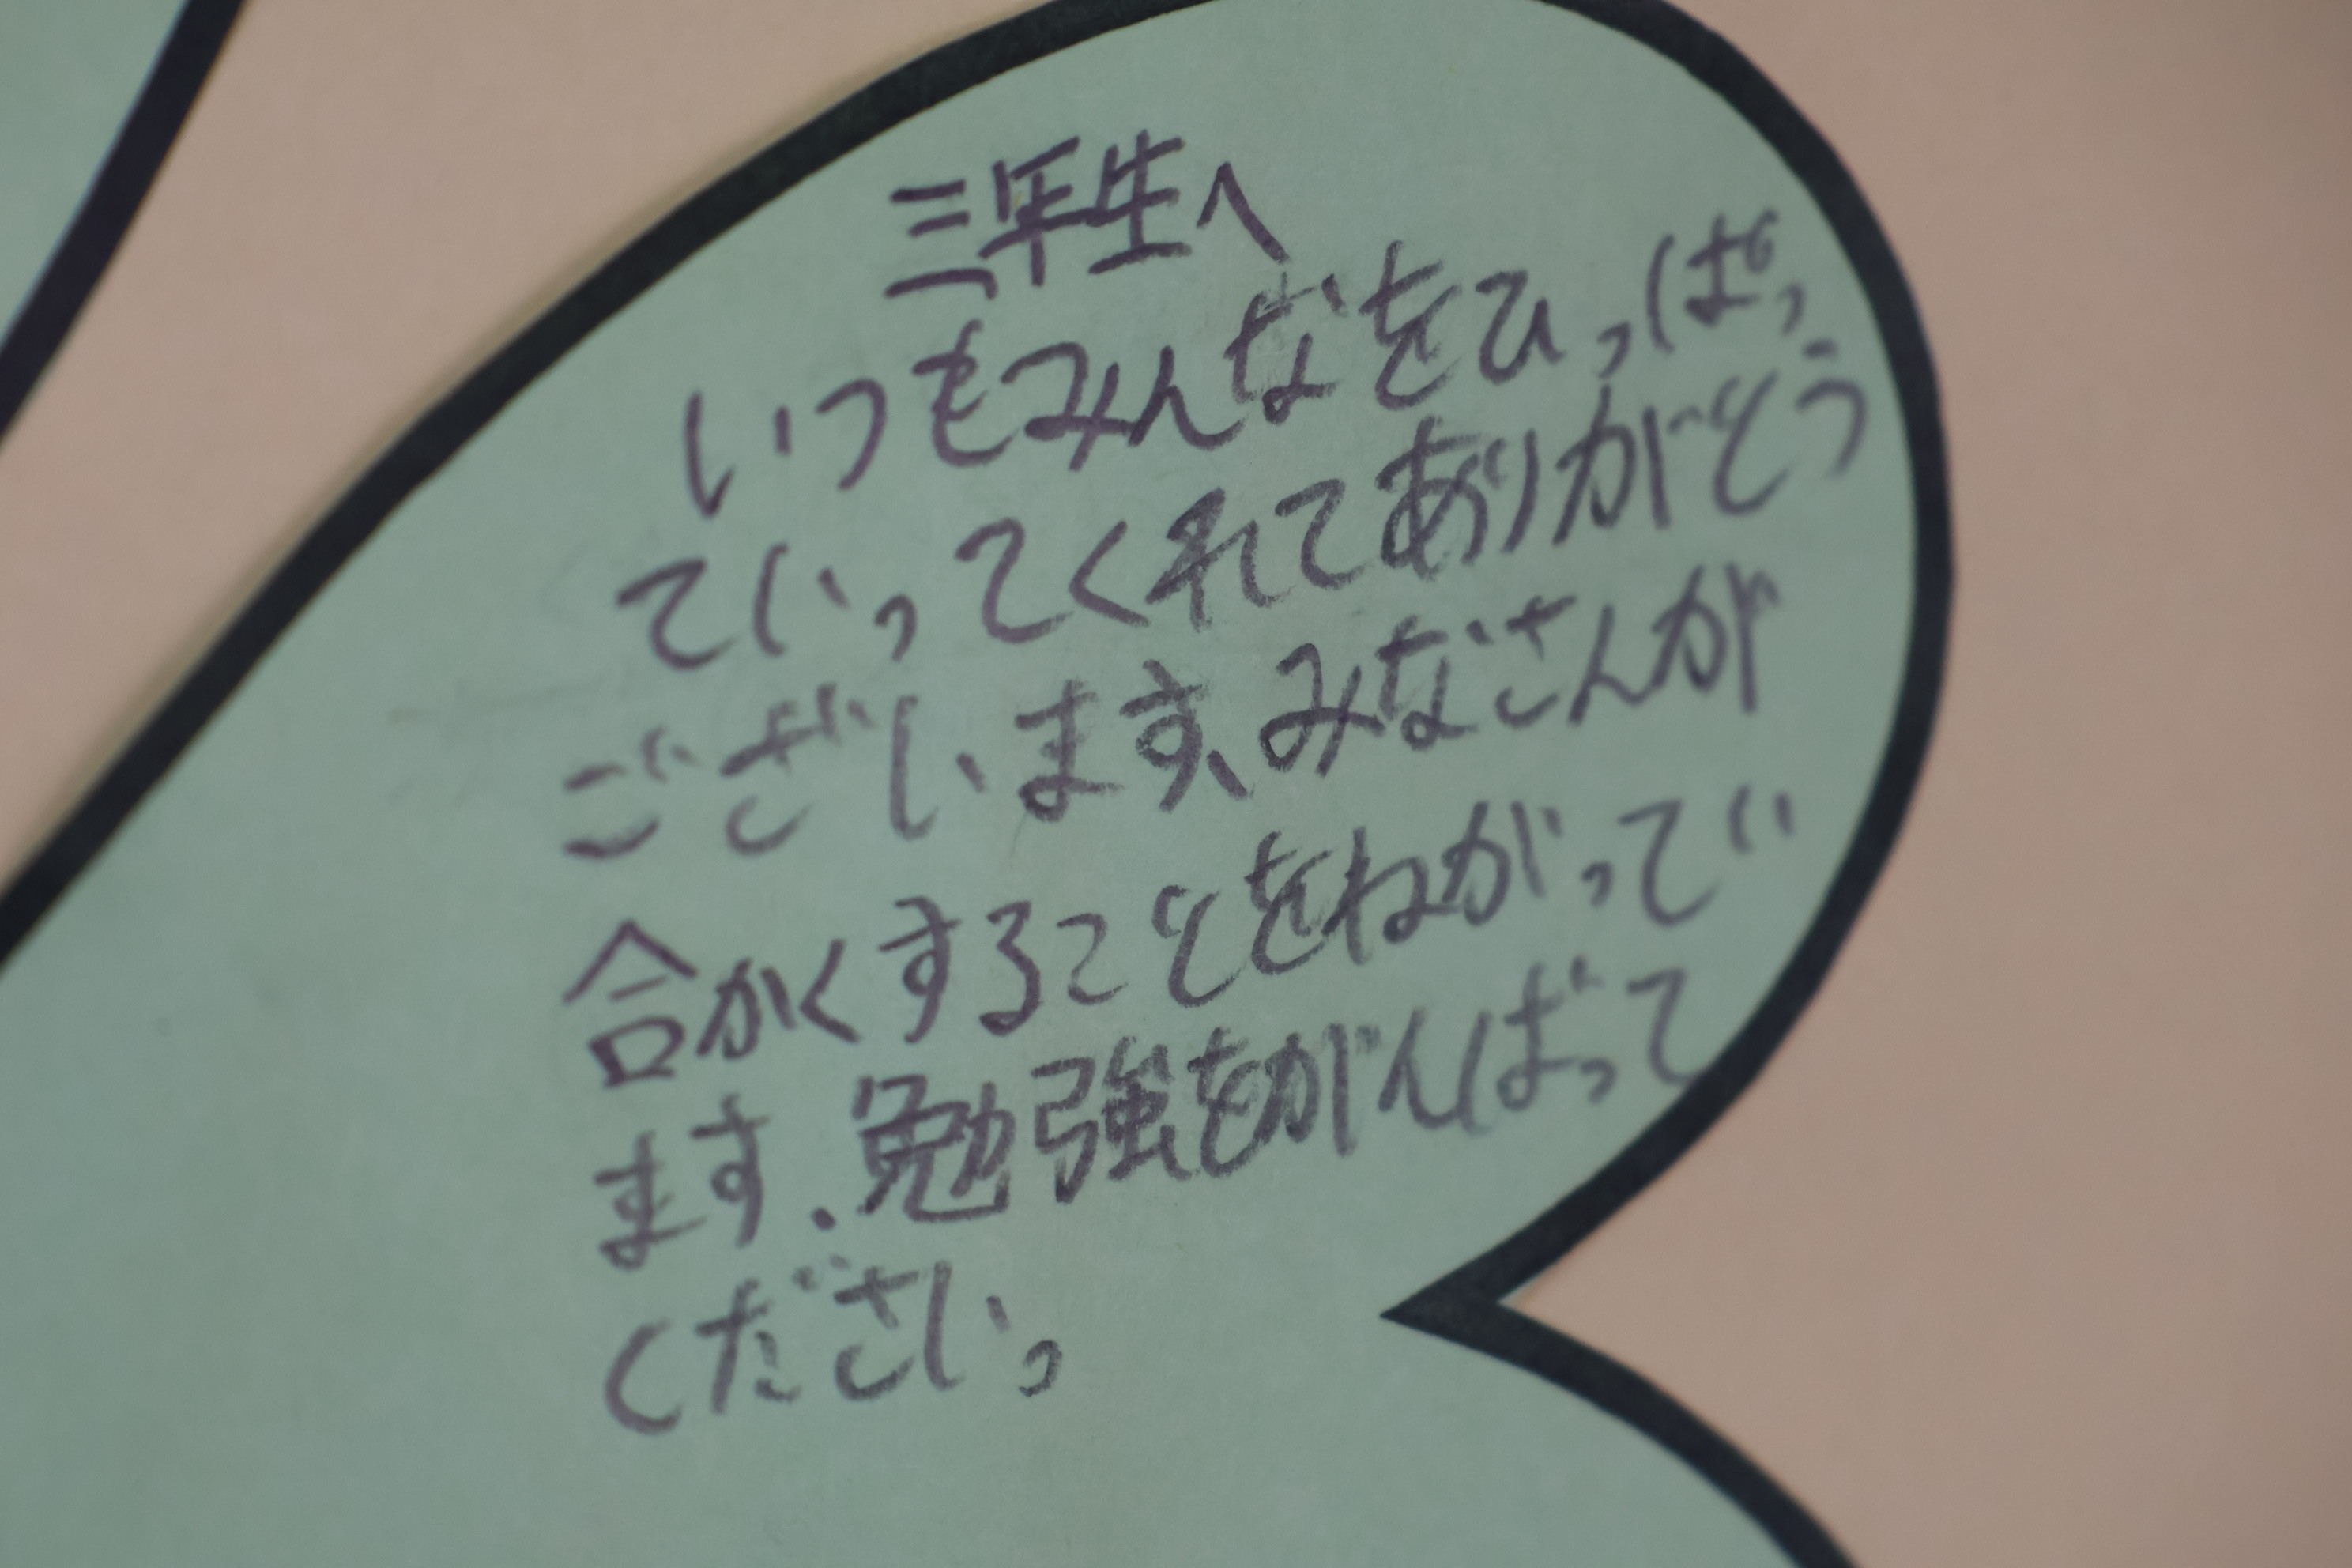 三年生へ
いつもみんなをひっぱっ
ていってくれてありがとう
ございます、みなさんが
合かくすることをねがってい
ます.勉強をがんばって
ください。